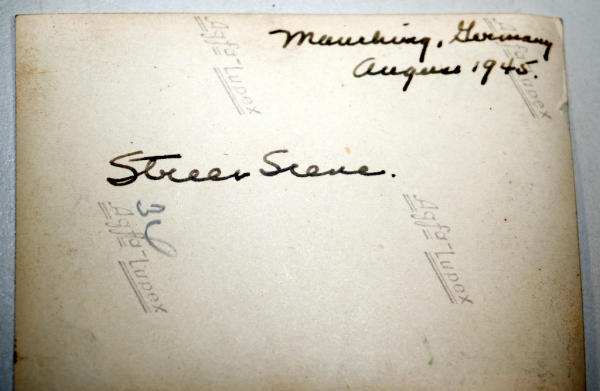 Manching, Germany
August 1945.
Agfa-Lupex
Agfa-Lupex
Street Scene.
Agfa-Lupex
Agfa-Lupex